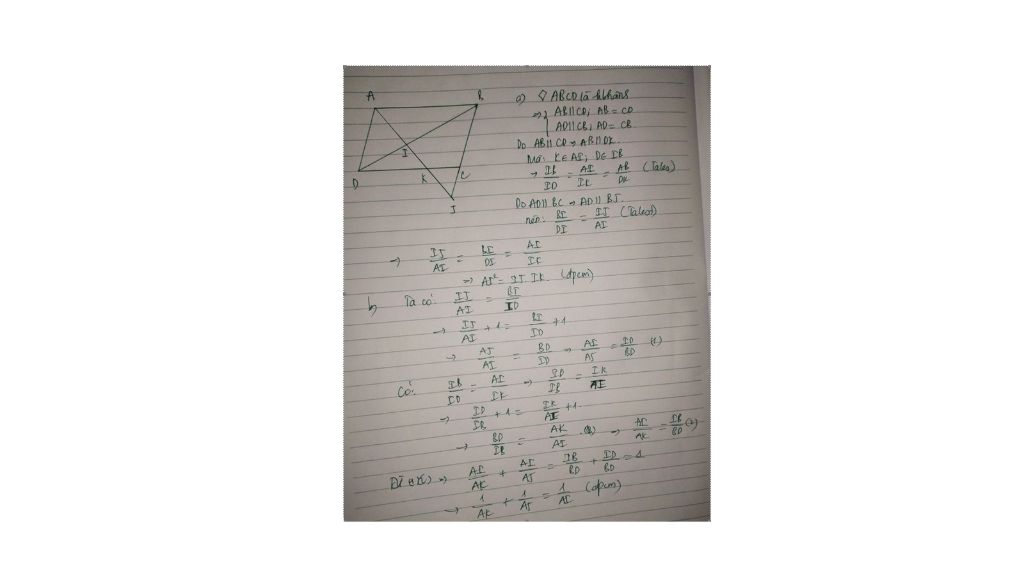 A B
I
D K C
J
a) ◊ ABCD là hbhành
=> { AB∥CD, AB = CD
AD∥CB, AD = CB.
Do AB∥CD → AB∥DK.
Mà: K∈AI; D∈IB
→ IB/ID = AI/IK = AB/DK (Tales)
Do AD∥BC → AD∥BJ.
nên: BI/DI = IJ/AI (Tales)
→ IJ/AI = BI/DI = AI/IK
=> AI² = IJ.IK. (đpcm)
b, Ta có: IJ/AI = BI/ID
→ IJ/AI + 1 = BI/ID + 1
→ AJ/AI = BD/ID → AI/AJ = ID/BD (1)
Có: IB/ID = AI/IK → ID/IB = IK/AI
→ ID/IB + 1 = IK/AI + 1
→ BD/IB = AK/AI → AI/AK = IB/BD (2)
=> AI/AK + AI/AJ = IB/BD + ID/BD = 1
→ 1/AK + 1/AJ = 1/AI (đpcm)